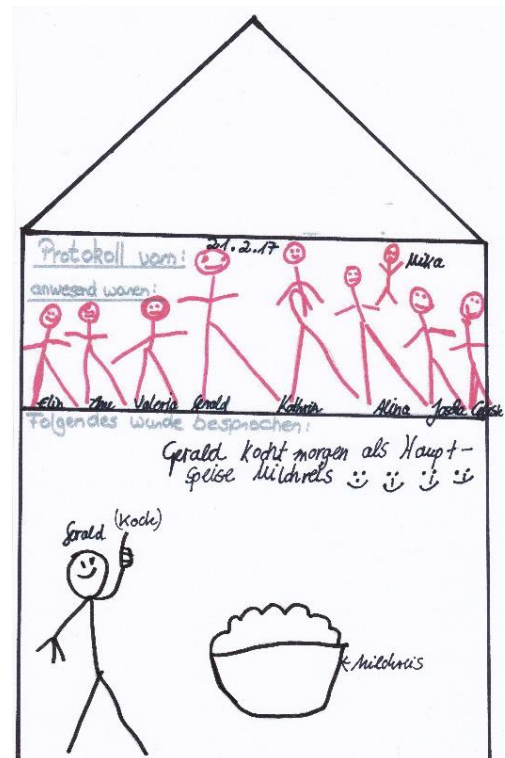 Protokoll vom: 21.2.17
anwesend waren:
Mika
Elin Valeria Gerald Kathrin Alina Joska
Folgendes wurde besprochen:
Gerald kocht morgen als Haupt-
speise Milchreis
Gerald (Koch)
Milchreis